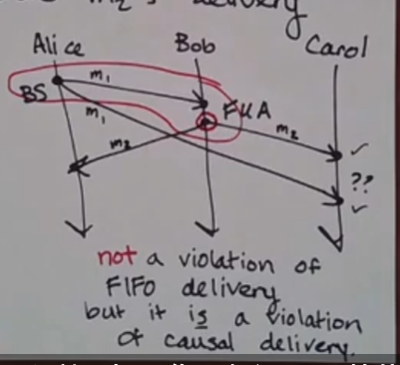 m₂'s delivery
Alice
Bob
Carol
m₁
BS
FUA
m₁
m₂
m₂
✓
??
✓
not a violation of
FIFO delivery
but it is a violation
of causal delivery.